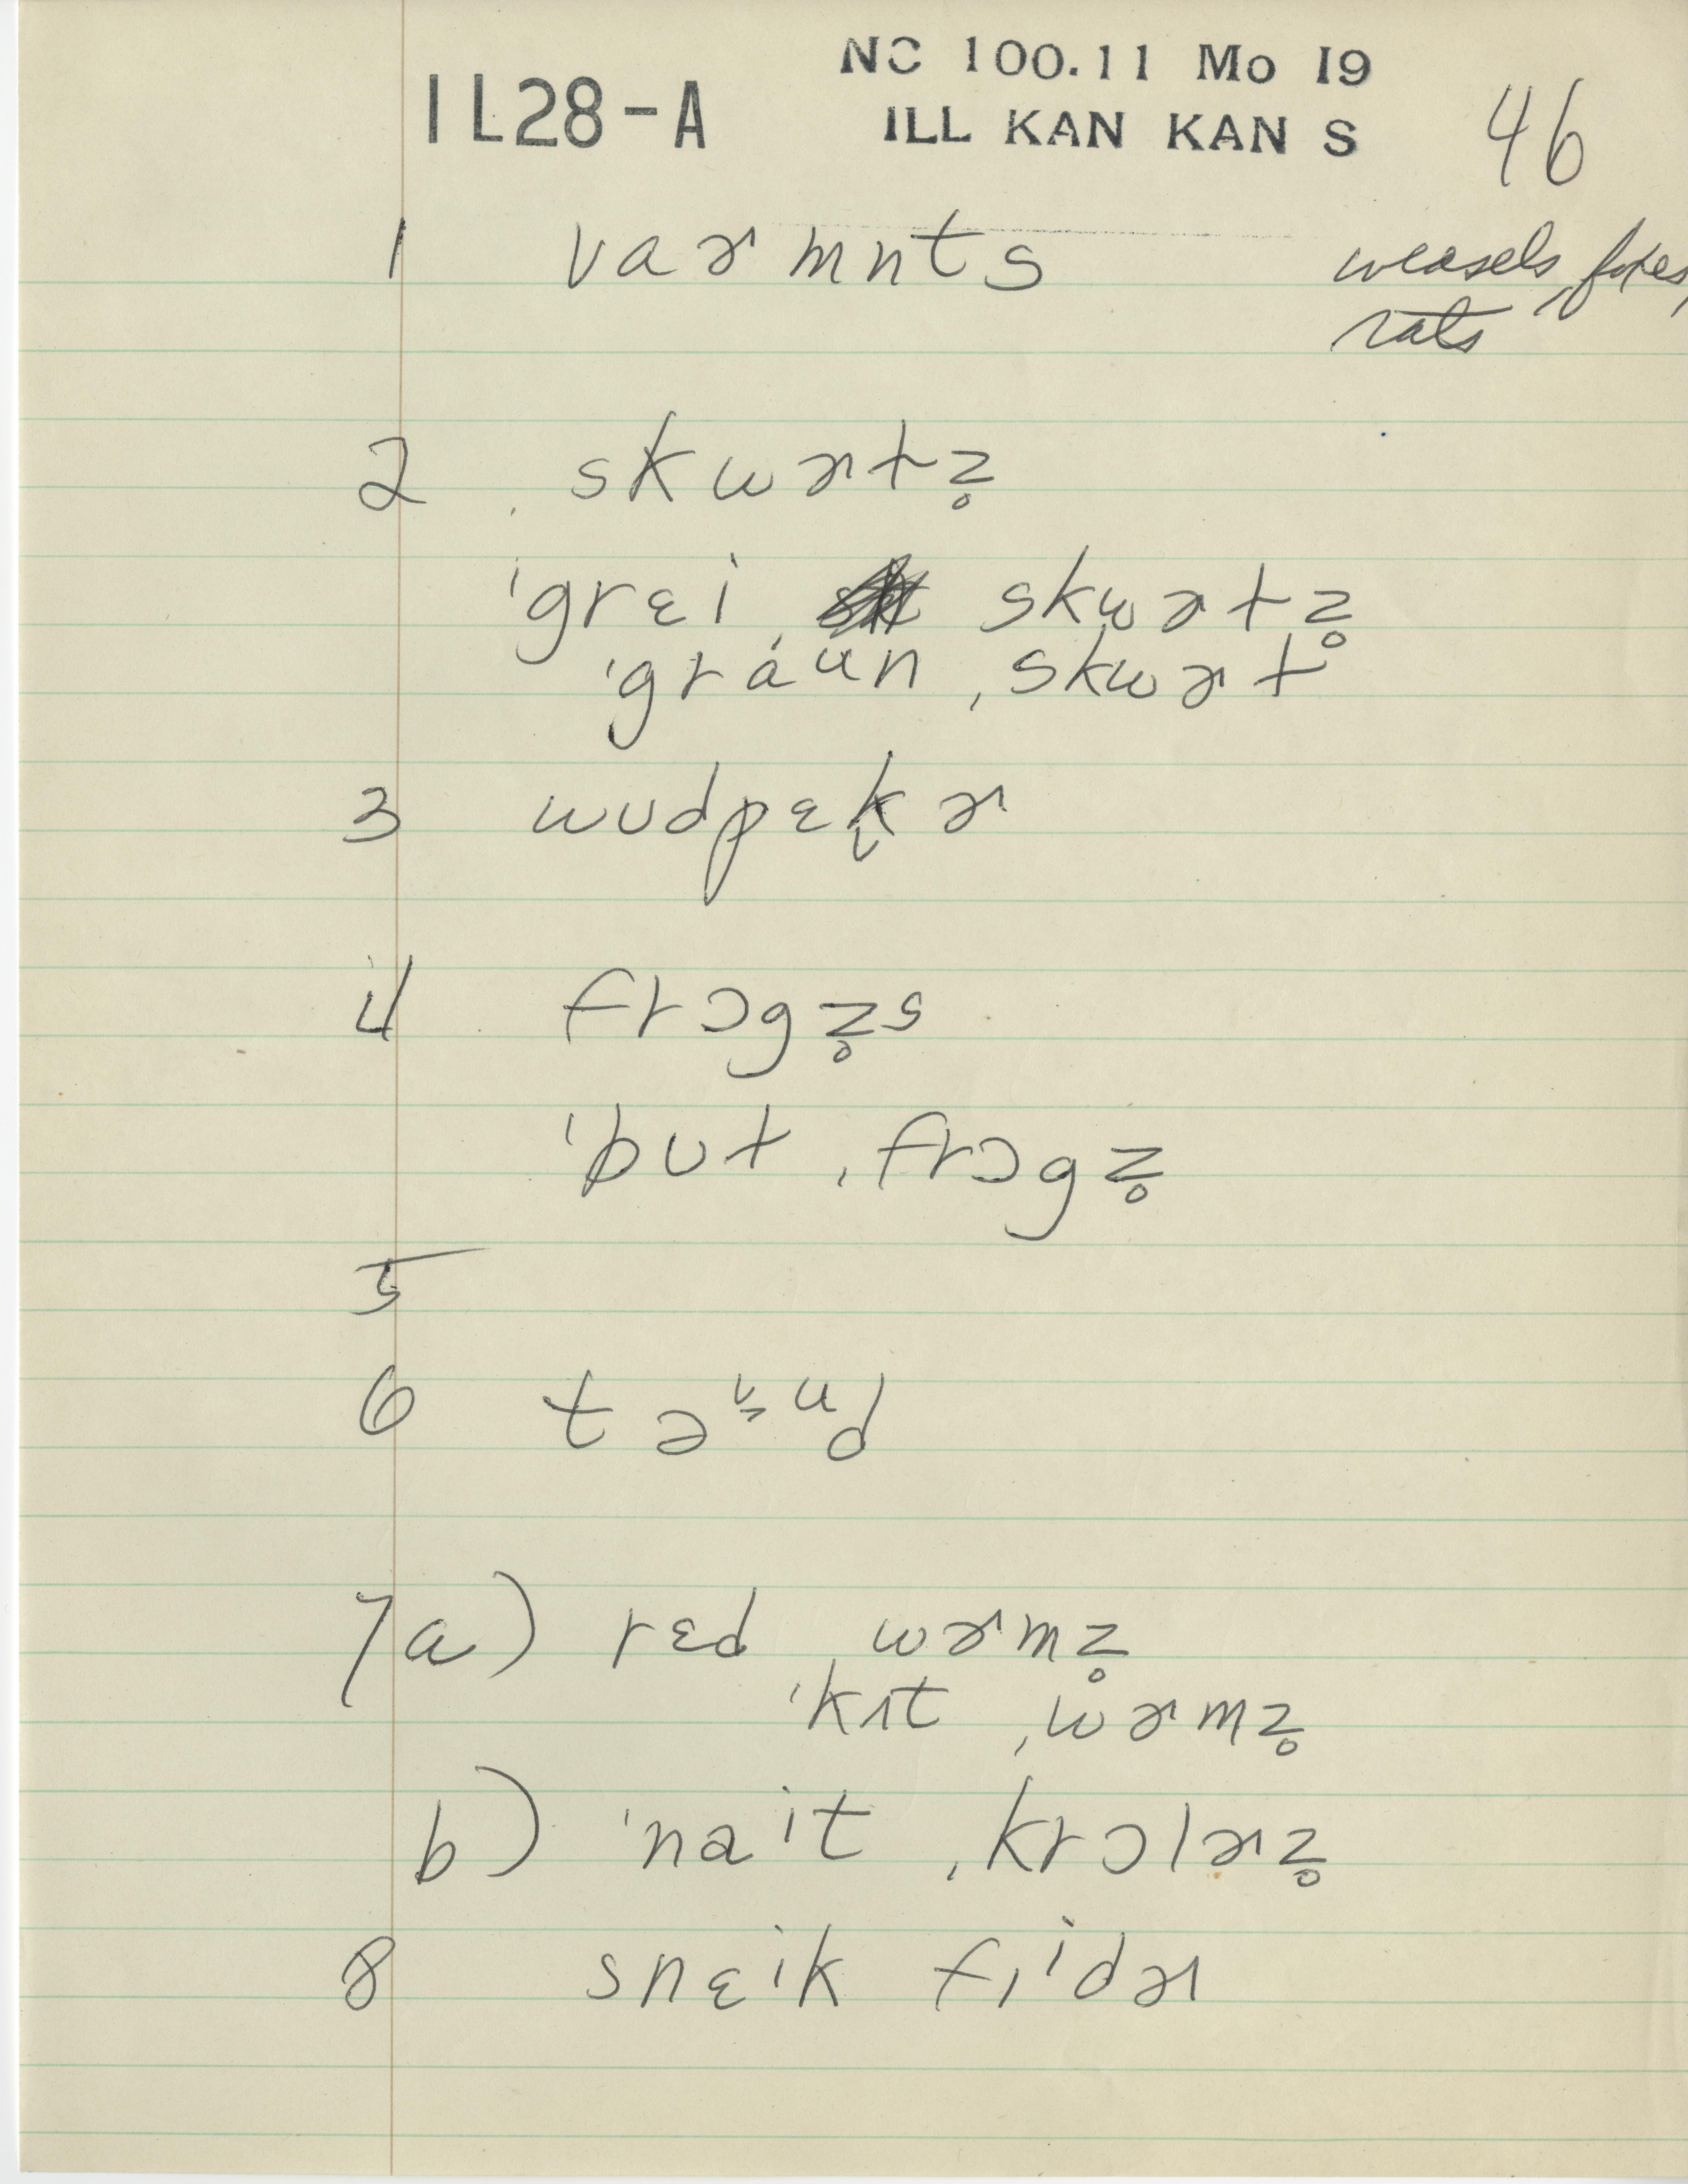 IL28-A
NC 100.11 Mo I9
ILL KAN KAN S
46
1 vaɚmnts weasels, foxes,
rats
2 ˌskwɚɫz̥
ˈgrɛi ˌskwɚɫz̥
ˈgraun ˌskwɚɫ
3 wudpɛkɚ
4 frɔgz̥s
ˈbuɫ ˌfrɔgz̥
5
6
7a) rɛd ˌwɚmz̥
ˈkɪt ˌwɚmz̥
b) ˈnait ˌkrɔlɚz̥
8 snɛik fɪidɚ